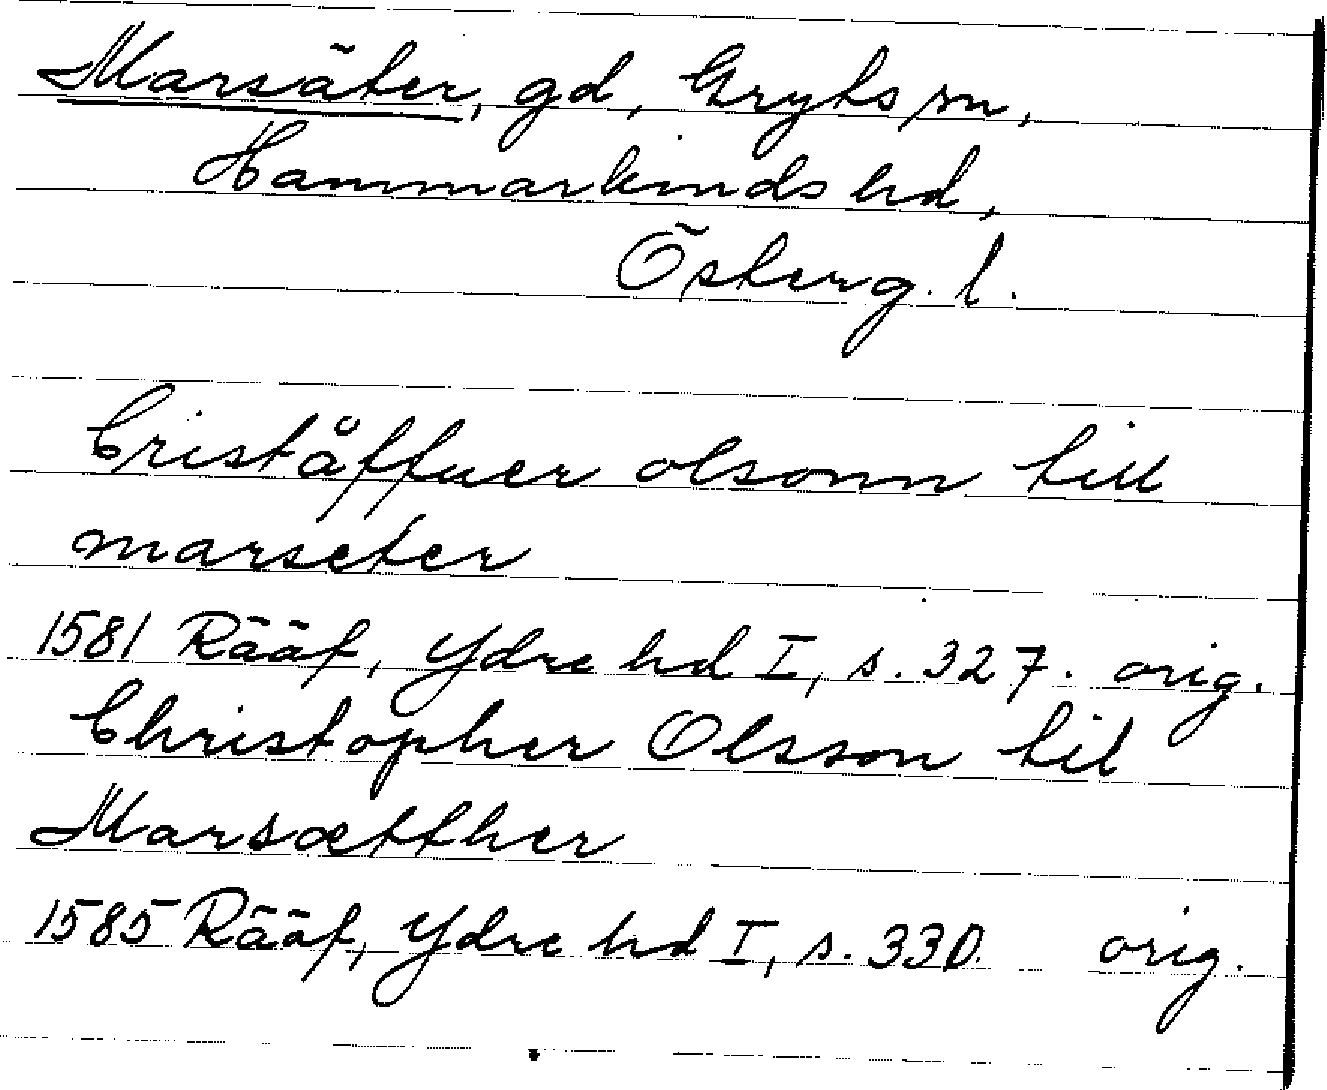 Marsäter, gd, Gryts sn,
Hammarkinds hd,
Österg. l.
Criståffuer olsonn till
marseter
1581 Rääf, Ydre hd I, s. 327. orig.
Christopher Olsson til
Marsætther
1585 Rääf, Ydre hd I, s. 330. orig.